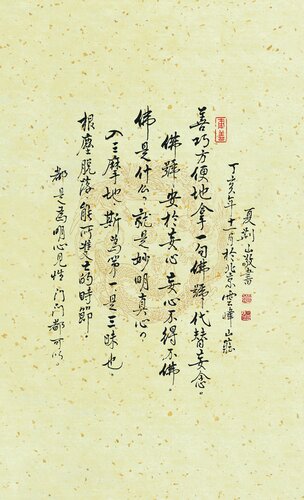 都是為明心見性门门都可以。
根塵脫落能所雙亡的時節。
入三摩地斯為第一是三昧也。
佛是什么？就是妙明真心。
佛號安於妄心妄心不得不佛。
善巧方便地拿一句佛號代替妄念。
丁亥年十一月於北京雲峰山莊
夏荆山敬書